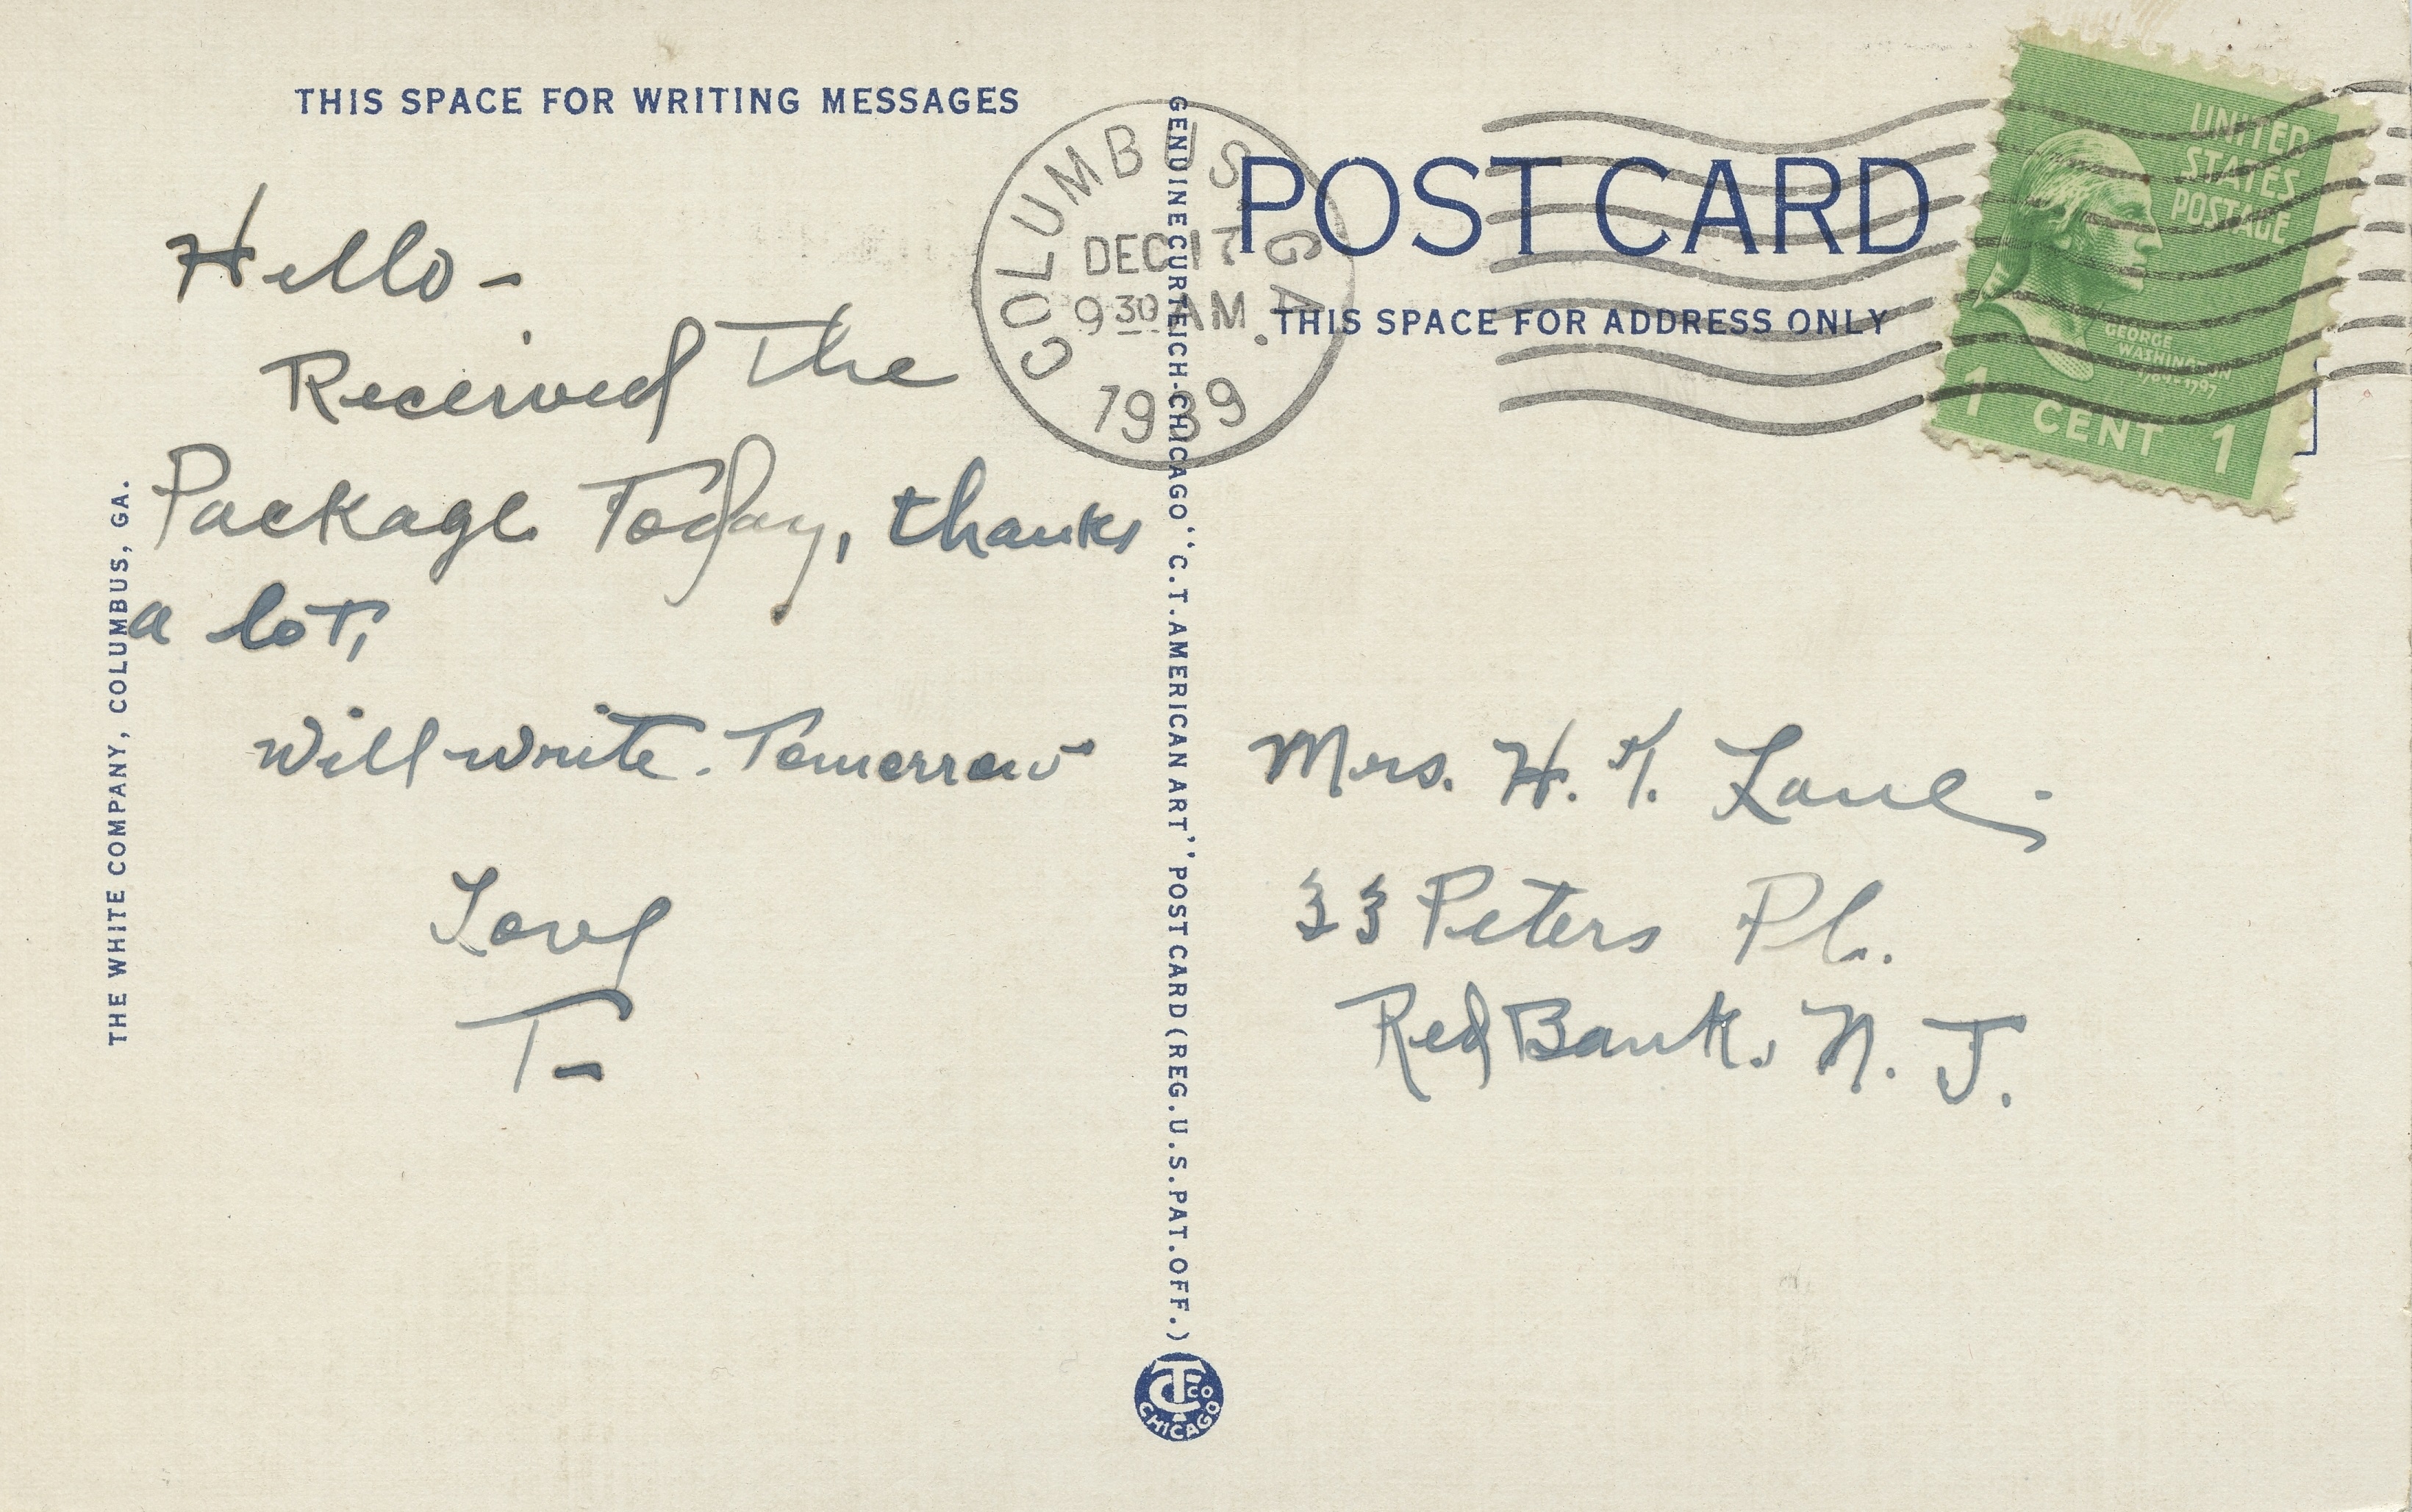 THIS SPACE FOR WRITING MESSAGES
Hello -
Received The
Package Today, thanks
a lot,
Will write. Tomorrow
Love
T-
THE WHITE COMPANY, COLUMBUS, GA.
GENUINE CURTEICH-CHICAGO "C.T. AMERICAN ART" POST CARD (REG. U.S. PAT. OFF.)
CT CO
CHICAGO
COLUMBUS, GA.
DEC 17
9 30 AM
1939
POST CARD
THIS SPACE FOR ADDRESS ONLY
UNITED
STATES
POSTAGE
GEORGE
WASHINGTON
1789-1797
1 CENT 1
Mrs. H. Lane
33 Peters Pl.
Red Bank, N. J.